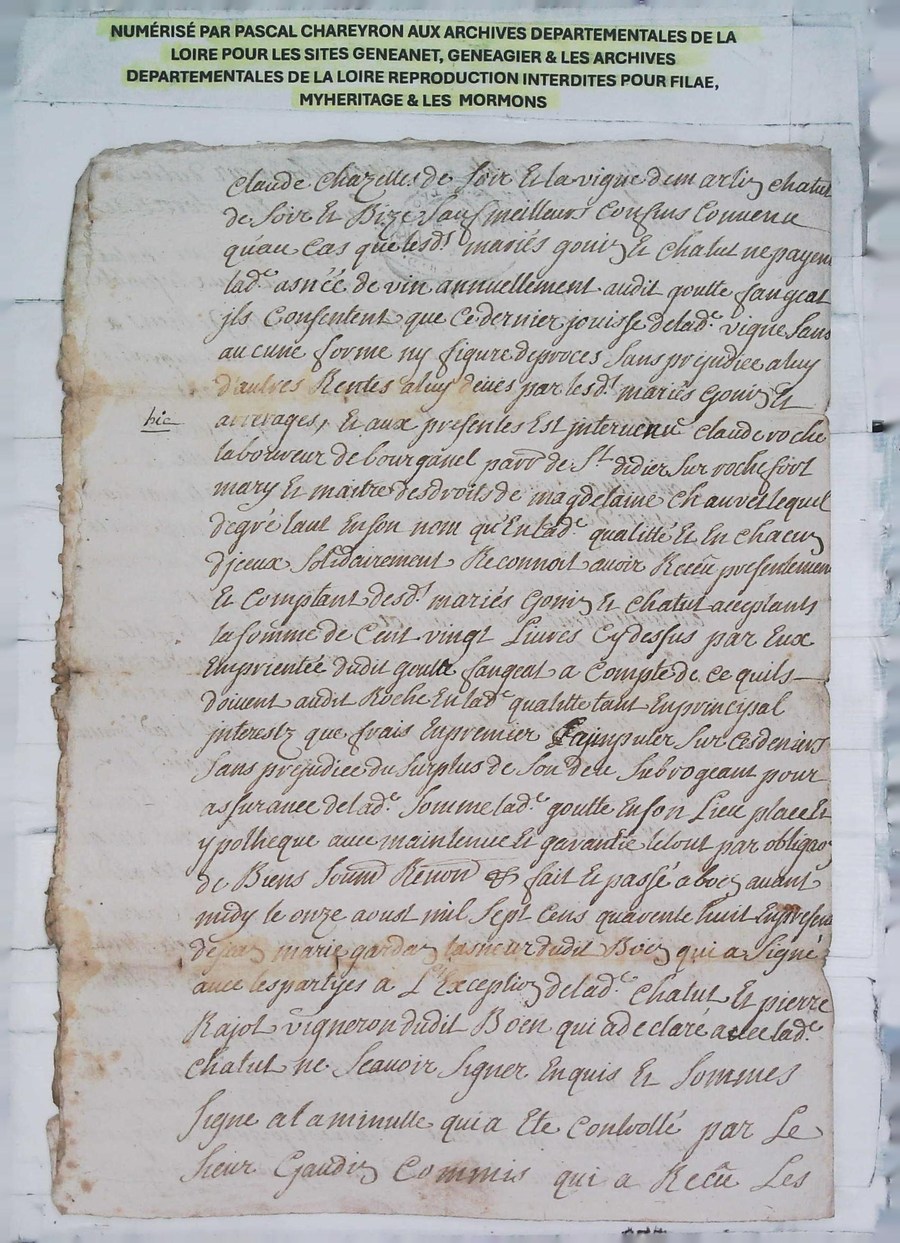 NUMÉRISÉ PAR PASCAL CHAREYRON AUX ARCHIVES DEPARTEMENTALES DE LA
LOIRE POUR LES SITES GENEANET, GENEAGIER & LES ARCHIVES
DEPARTEMENTALES DE LA LOIRE REPRODUCTION INTERDITES POUR FILAE,
MYHERITAGE & LES MORMONS
Claude Chazelles de Soir Et la vigne de martin chalut
de Soir Et Bize Sauf meilleurs Confins Convenu
qu'au Cas que lesds mariés gonin Et Chalut ne payent
lade asnée de vin annuellement audit goutte fangeat
jls Consentent que Ce dernier jouisse delade vigne Sans
aucune forme ny figure de proces Sans prejudice a luy
d'autres Rentes a luy deues par lesds mariés gonin Et
arrerages, Et aux presentes Est jntervenu Claude roche
hic
laboureur de bourganel paroe de St didier Sur rochefort
mary Et maitre des droits de magdelaine Chauvet lequel
de gré tant En son nom qu'En lade qualitté Et En chacun
djceux Solidairement Reconnoit avoir Receu presentement
Et Comptant desds mariés gonin Et Chalut aceptants
la somme de Cent vingt Livres Cy dessus par Eux
Emprientée dudit goutte fangeat a Compte de ce quils
doivent audit Roche En lade qualitte tant En principal
jnterestz que frais En premier a jmputer Sur Ces deniers
Sans prejudice du Surplus de Son deu Subrogeant pour
assurance delade Somme lade goutte En son Lieu place Et
ypotheque avec maintenue Et garantie le tout par obligaon
de Biens Soumd Renond & fait Et passé a boen avant
midy le onze aoust mil Sept Cens quarente huit En presence
de jean marie gardan dudit Boen qui a Signé
avec les partyes a L'Exception delade Chalut Et pierre
Rajot vigneron dudit Boen qui a declaré avec lade
Chalut ne Scavoir Signer Enquis Et Sommes
Signe a la minutte qui a Eté Controllé par Le
Sieur Gaudin Commis qui a Receu Les